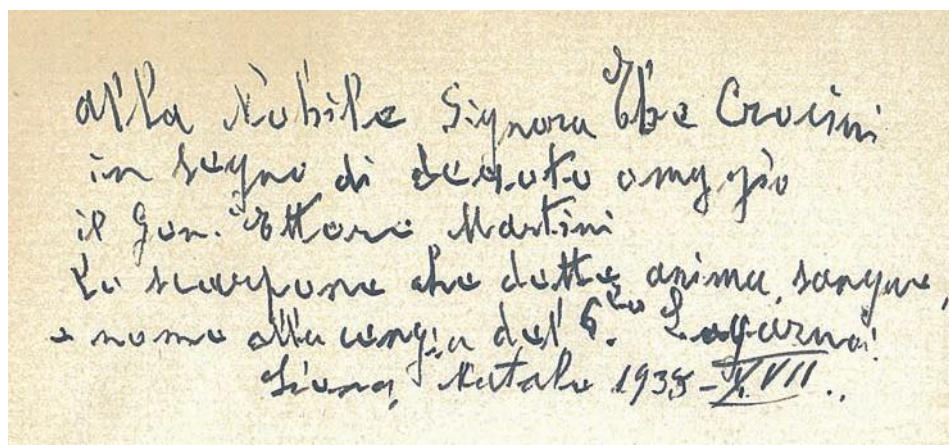 alla Nobile Signora Ebe Crocini
in segno di devoto omaggio
il Gen. Ettore Martini
Lo scarpone che dette anima, sangue,
e nome alla cengia del
Siena, Natale 1938-XVII.